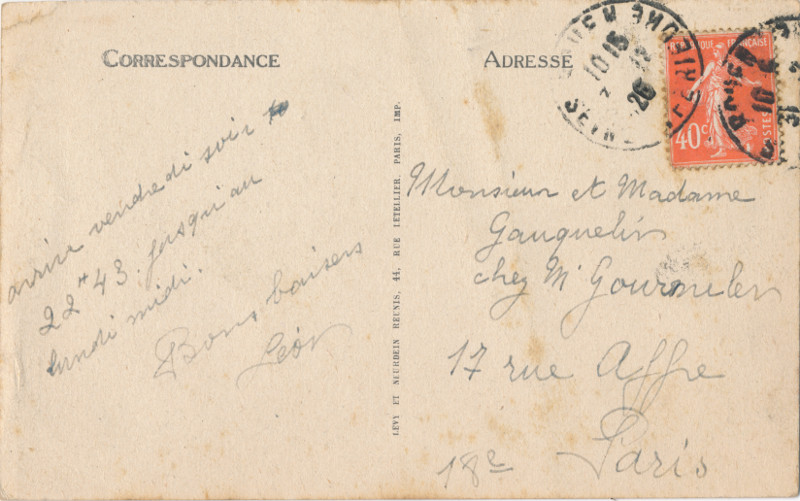 CORRESPONDANCE
ADRESSE
arrive vendredi soir
22 h 43. jusqu'au
lundi midi.
Bons baisers
Léon
Monsieur et Madame
Gauquelin
chez Mr Gourmelen
17 rue Affre
Paris
18e
LEVY ET NEURDEIN REUNIS, 44, RUE LETELLIER, PARIS, IMP.
FRANÇAISE
40c
POSTES
10 15
26